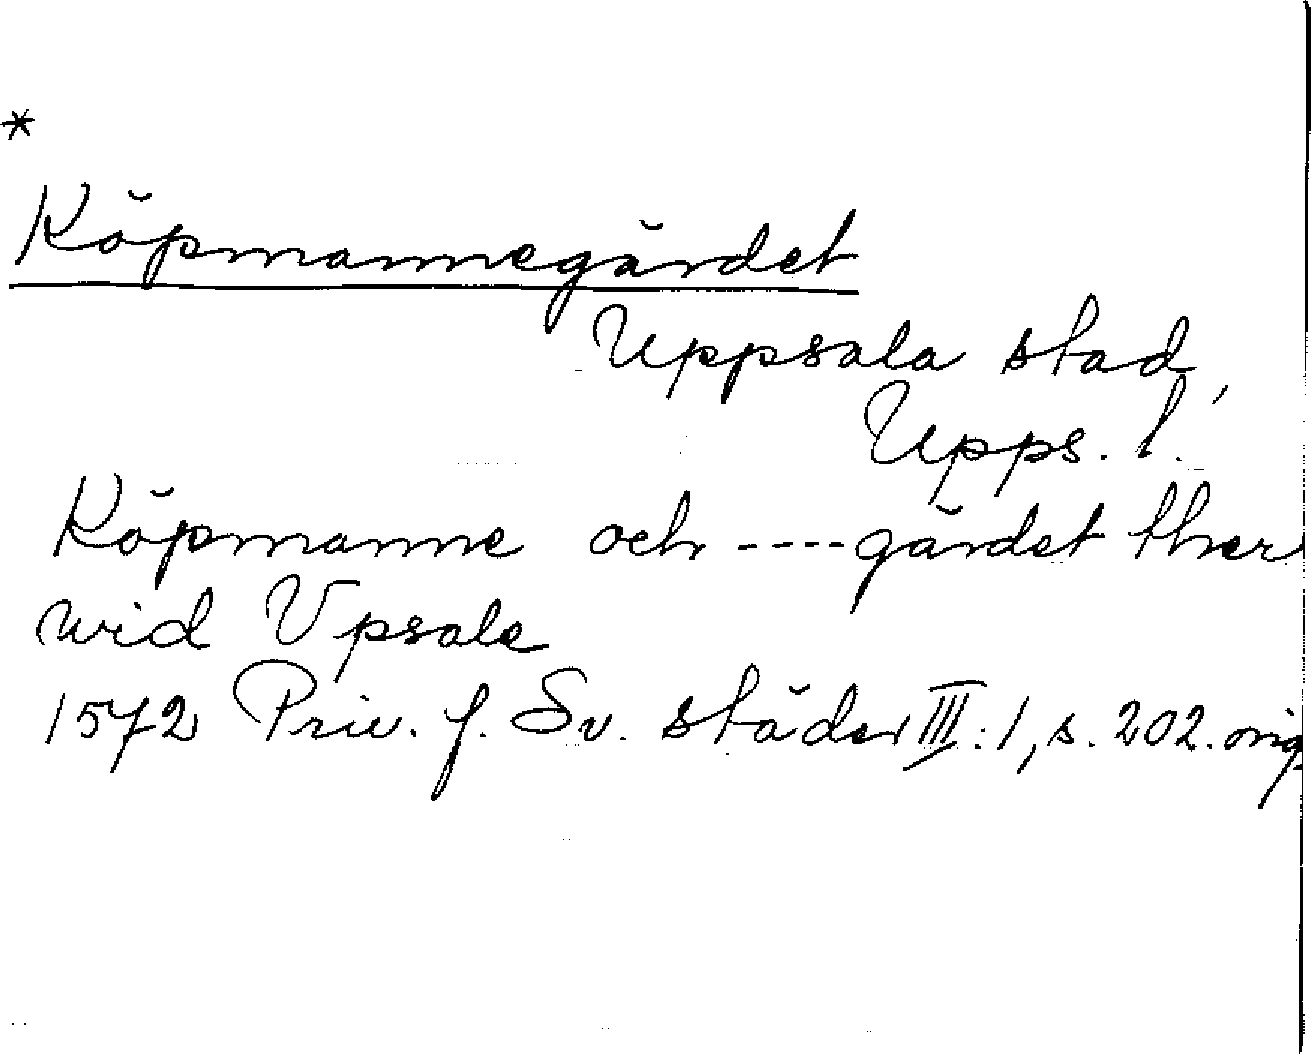 *
Köpmannegärdet
Uppsala stad,
Upps. l.
Köpmanne och ----gärdet ther
wid Vpsale
1572 Priv. f. Sv. städer III:1, s. 202. orig.